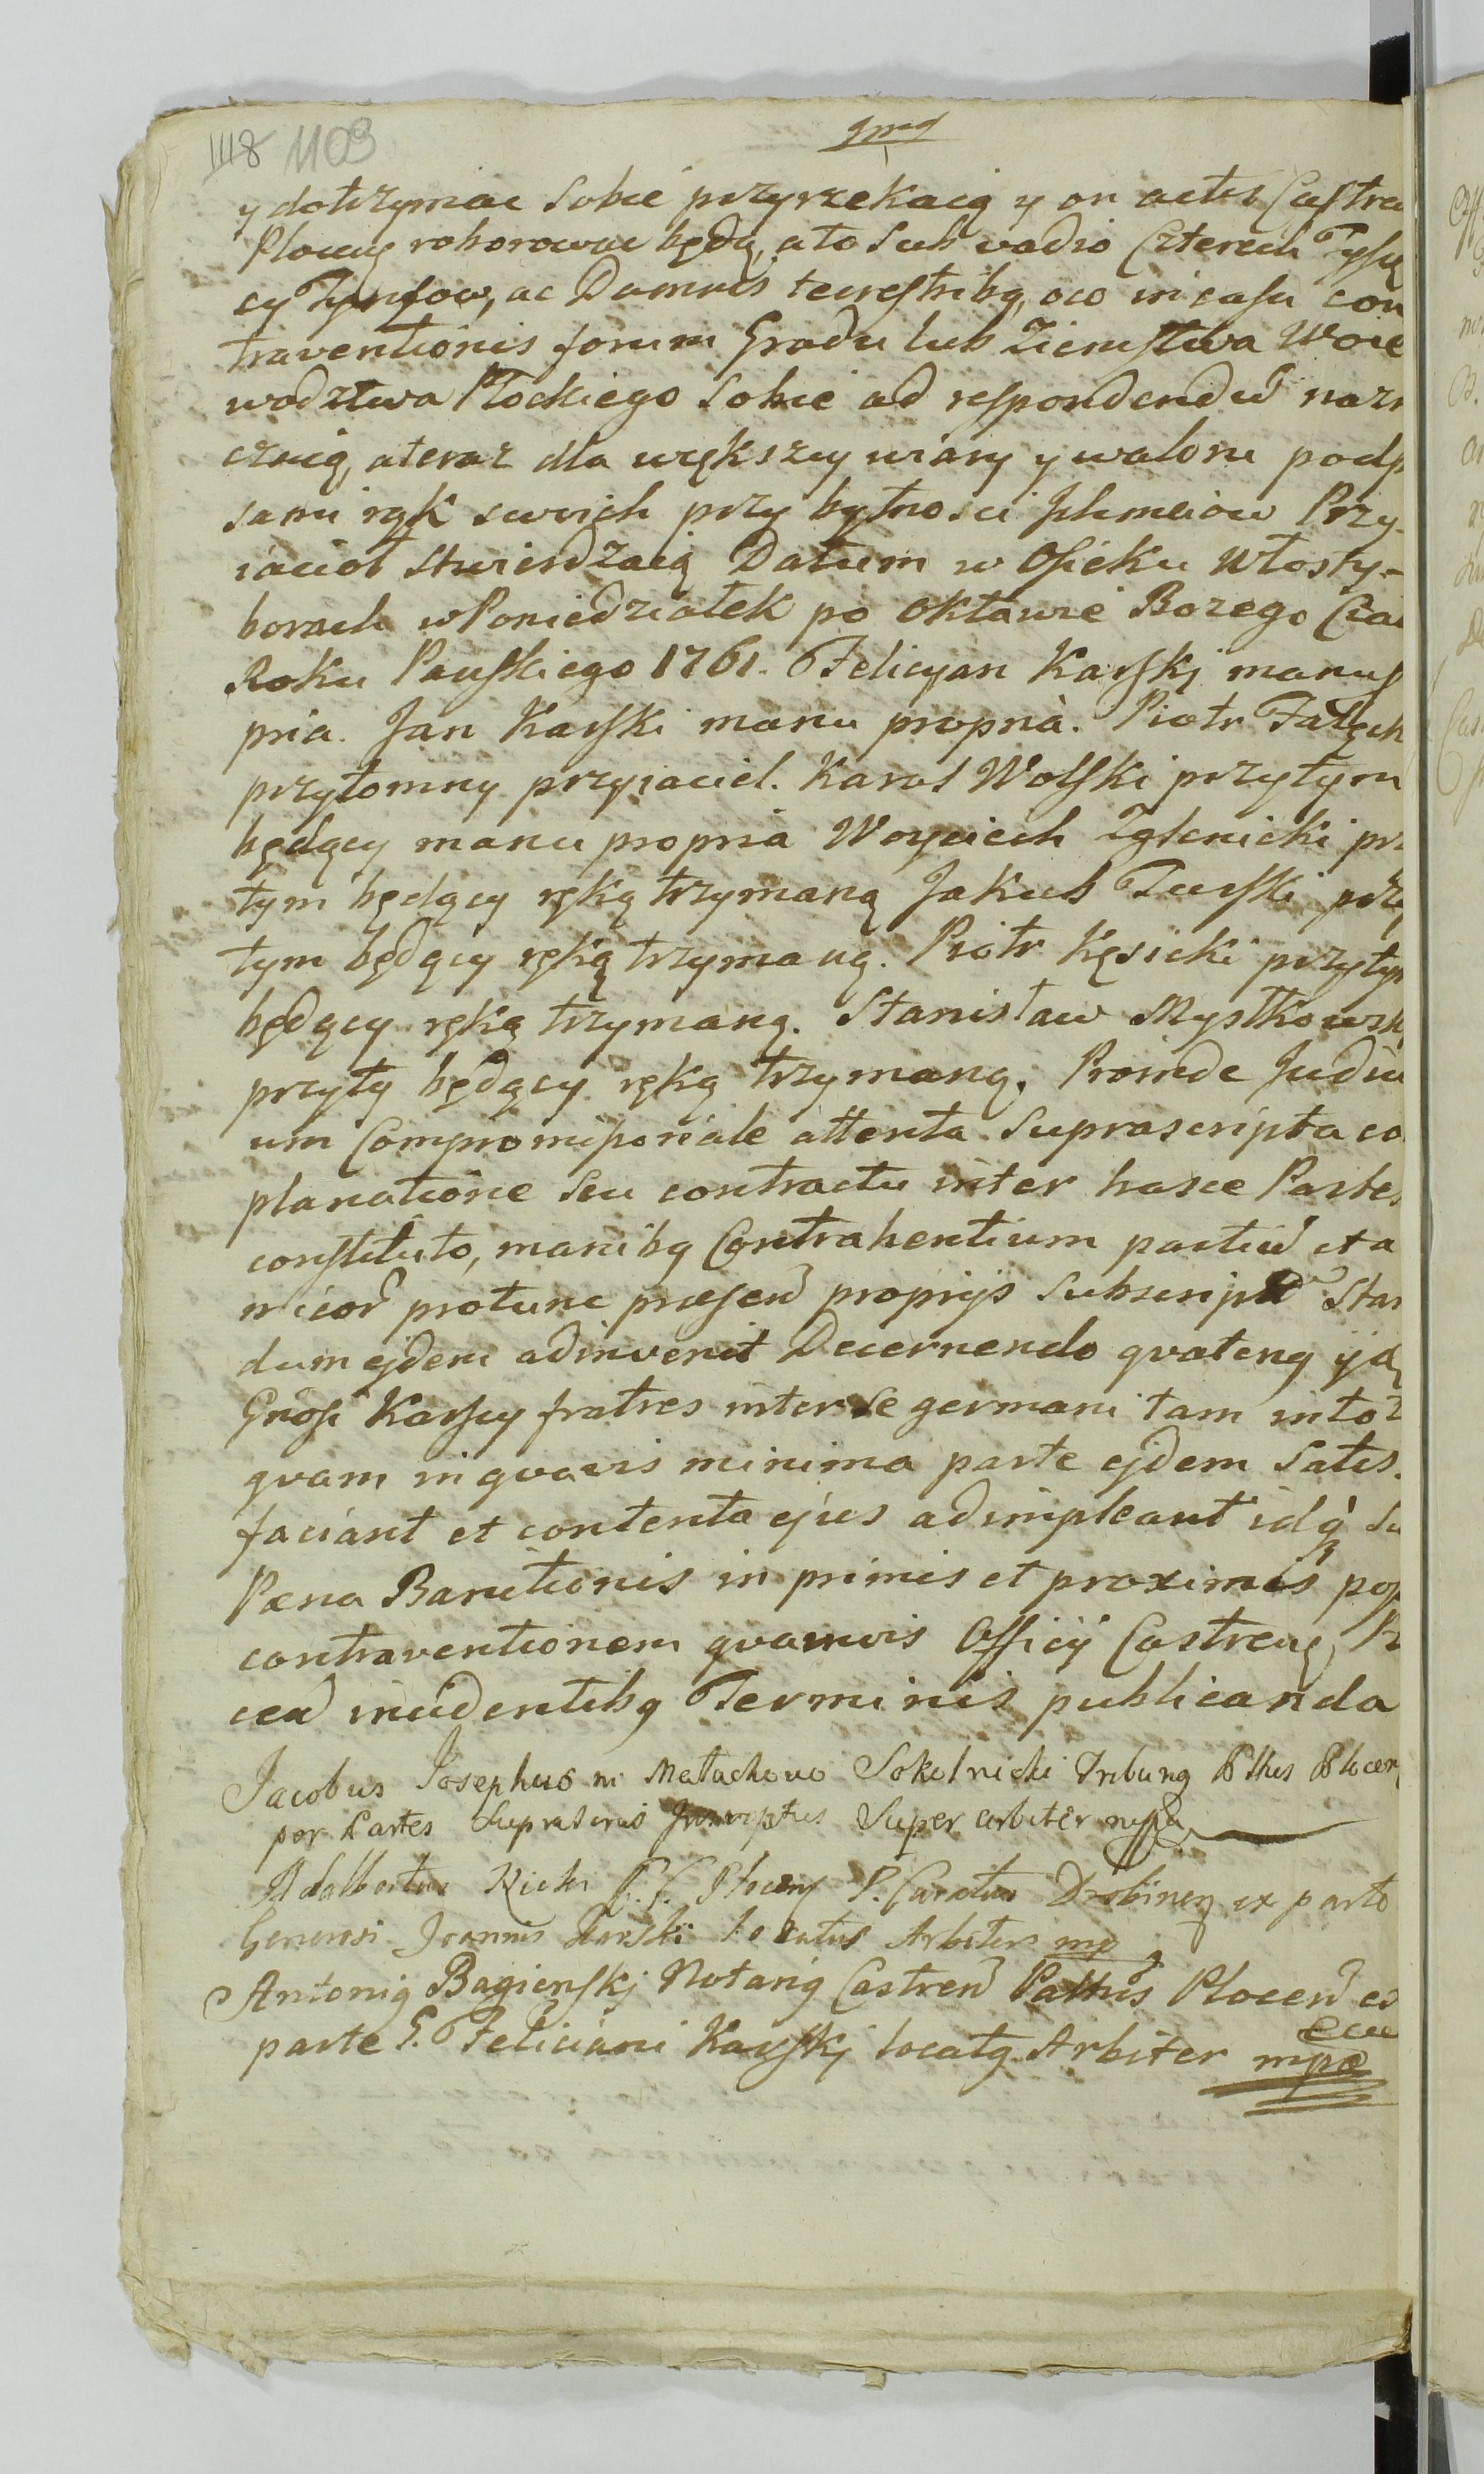 1118 1109
y dotrzymac sobie przyrzekaią y on actis Castren
Plociz roborowac będą, ato sub vadio Czterech Tysię
cy Tynfow, ac Damnis terrestribq, oco in casu con
traventionis forum Grodu lub Ziemstwa Woie
wodztwa Płockiego sobie ad respondendū nazn
czaią, ateraz dla większey wiary y waloru podp
sami rąk swoich przy bytnosci Jchmciow Przy-
iacioł stwierdzaią Datum w Osieku Włosty-
borach w Poniedziałek po Oktawie Bozego Ciał
Roku Panskiego 1761. Felicyan Karskj manu
pria. Jan Karski manu propria. Piotr Fałęck
przytomny przyiaciel. Karol Wolski przytym
będący manu propria Woyciech Zglenicki prz
tym będący ręką trzymaną Jakub Turski przy
tym będący ręką trzymaną. Piotr Kęsicki przytym
będący ręką trzymaną. Stanisław Mystkowsk
przytą będący ręką trzymaną. Proinde Judici
um Compromissoriale attenta suprascripta co
planatione seu contractu inter hasce Partes
constituto, manibq Contrahentium partiū et a
micor protunc præsen proprijs subscript Stan
dum ejdem adinvenit Decernendo qvatenq ijd
Gnosi Karscy fratres inter se germani tam in tot
qvam in qvavis minima parte ejdem satis.
faciant et contenta ejus adimpleant idq su
Pæna Banitionis in primis et proximis pos
contraventionem qvamvis Officij Castreñ Pl
cen incidentibq Terminis publicanda
Jacobus Josephus in Małachowo Sokolnicki Tribunq Pttus Plocen
per Partes Suprascrias Inscriptus Super arbiter mppa
Adalbertus Kicki P. C. Plocens P. Curatus Drobinen ex parte
Generosi Joannis Karski locatus Arbiter mp
Antoniq Bagienskj Notariq Castren Pattus Plocen ex
parte G. Feliciani Karskj locatq Arbiter mpa